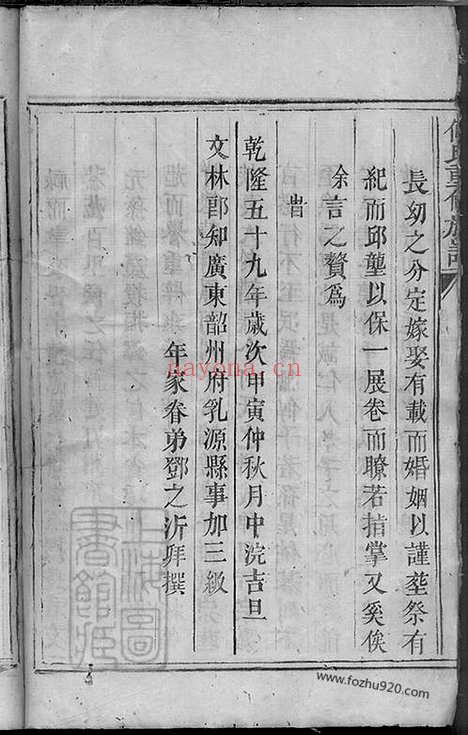 長幼之分定嫁娶有載而婚姻以謹塟祭有
紀而邱壟以保一展卷而瞭若指掌又奚俟
余言之贅爲
旹
乾隆五十九年歲次甲寅仲秋月中浣吉旦
文林郎知廣東韶州府乳源縣事加三級
年家眷弟鄧之沂拜撰
nayona.cn
www.fozhu920.com